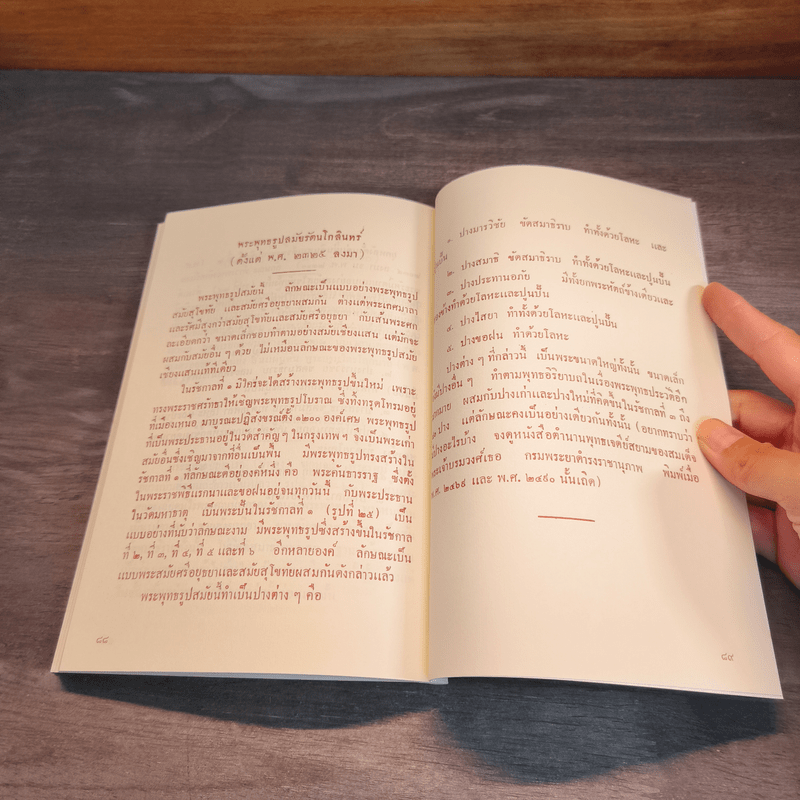 พระพุทธรูปสมัยรัตนโกสินทร์
(ตั้งแต่ พ.ศ. ๒๓๒๕ ลงมา)
พระพุทธรูปสมัยนี้ ลักษณะเป็นแบบอย่างพระพุทธรูป
สมัยสุโขทัย และสมัยศรีอยุธยาผสมกัน ต่างแต่พระเกตุมาลา
และรัศมีสูงกว่าสมัยสุโขทัยและสมัยศรีอยุธยา กับเส้นพระศก
ละเอียดกว่า ขนาดเล็กชอบทำตามอย่างสมัยเชียงแสน แต่มักจะ
ผสมกับสมัยอื่น ๆ ด้วย ไม่เหมือนลักษณะของพระพุทธรูปสมัย
เชียงแสนแท้ทีเดียว
ในรัชกาลที่ ๑ มิใคร่จะได้สร้างพระพุทธรูปขึ้นใหม่ เพราะ
ทรงพระราชศรัทธาให้เชิญพระพุทธรูปโบราณ ซึ่งทิ้งทรุดโทรมอยู่
ที่เมืองเหนือ มาบูรณะปฏิสังขรณ์ตั้ง ๑๒๐๐ องค์เศษ พระพุทธรูป
ที่เป็นพระประธานอยู่ในวัดสำคัญ ๆ ในกรุงเทพ ฯ จึงเป็นพระเก่า
สมัยอื่นซึ่งเชิญมาจากที่อื่นเป็นพื้น มีพระพุทธรูปทรงสร้างใน
รัชกาลที่ ๑ ที่ลักษณะดีอยู่องค์หนึ่ง คือ พระคันธารราฐ ซึ่งตั้ง
ในพระราชพิธีแรกนาและขอฝนอยู่จนทุกวันนี้ กับพระประธาน
ในวัดมหาธาตุ เป็นพระปั้นในรัชกาลที่ ๑ (รูปที่ ๒๕) เป็น
แบบอย่างที่นับว่าลักษณะงาม มีพระพุทธรูปซึ่งสร้างขึ้นในรัชกาล
ที่ ๒, ที่ ๓, ที่ ๔, ที่ ๕ และที่ ๖ อีกหลายองค์ ลักษณะเป็น
แบบพระสมัยศรีอยุธยาและสมัยสุโขทัยผสมกันดังกล่าวแล้ว
พระพุทธรูปสมัยนี้ทำเป็นปางต่าง ๆ คือ
๘๘
๑. ปางมารวิชัย ขัดสมาธิราบ ทำทั้งด้วยโลหะ และ
ปั้น
๒. ปางสมาธิ ขัดสมาธิราบ ทำทั้งด้วยโลหะและปูนปั้น
๓. ปางประทานอภัย มีทั้งยกพระหัตถ์ข้างเดียวและ
ข้างทำด้วยโลหะและปูนปั้น
๔. ปางไสยา ทำทั้งด้วยโลหะและปูนปั้น
๕. ปางขอฝน ทำด้วยโลหะ
ปางต่าง ๆ ที่กล่าวนี้ เป็นพระขนาดใหญ่ทั้งนั้น ขนาดเล็ก
มีปางอื่น ๆ ทำตามพุทธอิริยาบถในเรื่องพระพุทธประวัติอีก
มากมาย ผสมกับปางเก่าและปางใหม่ที่คิดขึ้นในรัชกาลที่ ๓ ถึง
ปาง แต่ลักษณะคงเป็นอย่างเดียวกันทั้งนั้น (อยากทราบว่า
ปางอะไรบ้าง จงดูหนังสือตำนานพุทธเจดีย์สยามของสมเด็จ
กรมพระยาดำรงราชานุภาพ พิมพ์เมื่อ
พ.ศ. ๒๔๖๙ และ พ.ศ. ๒๔๙๐ นั้นเถิด)
๘๙